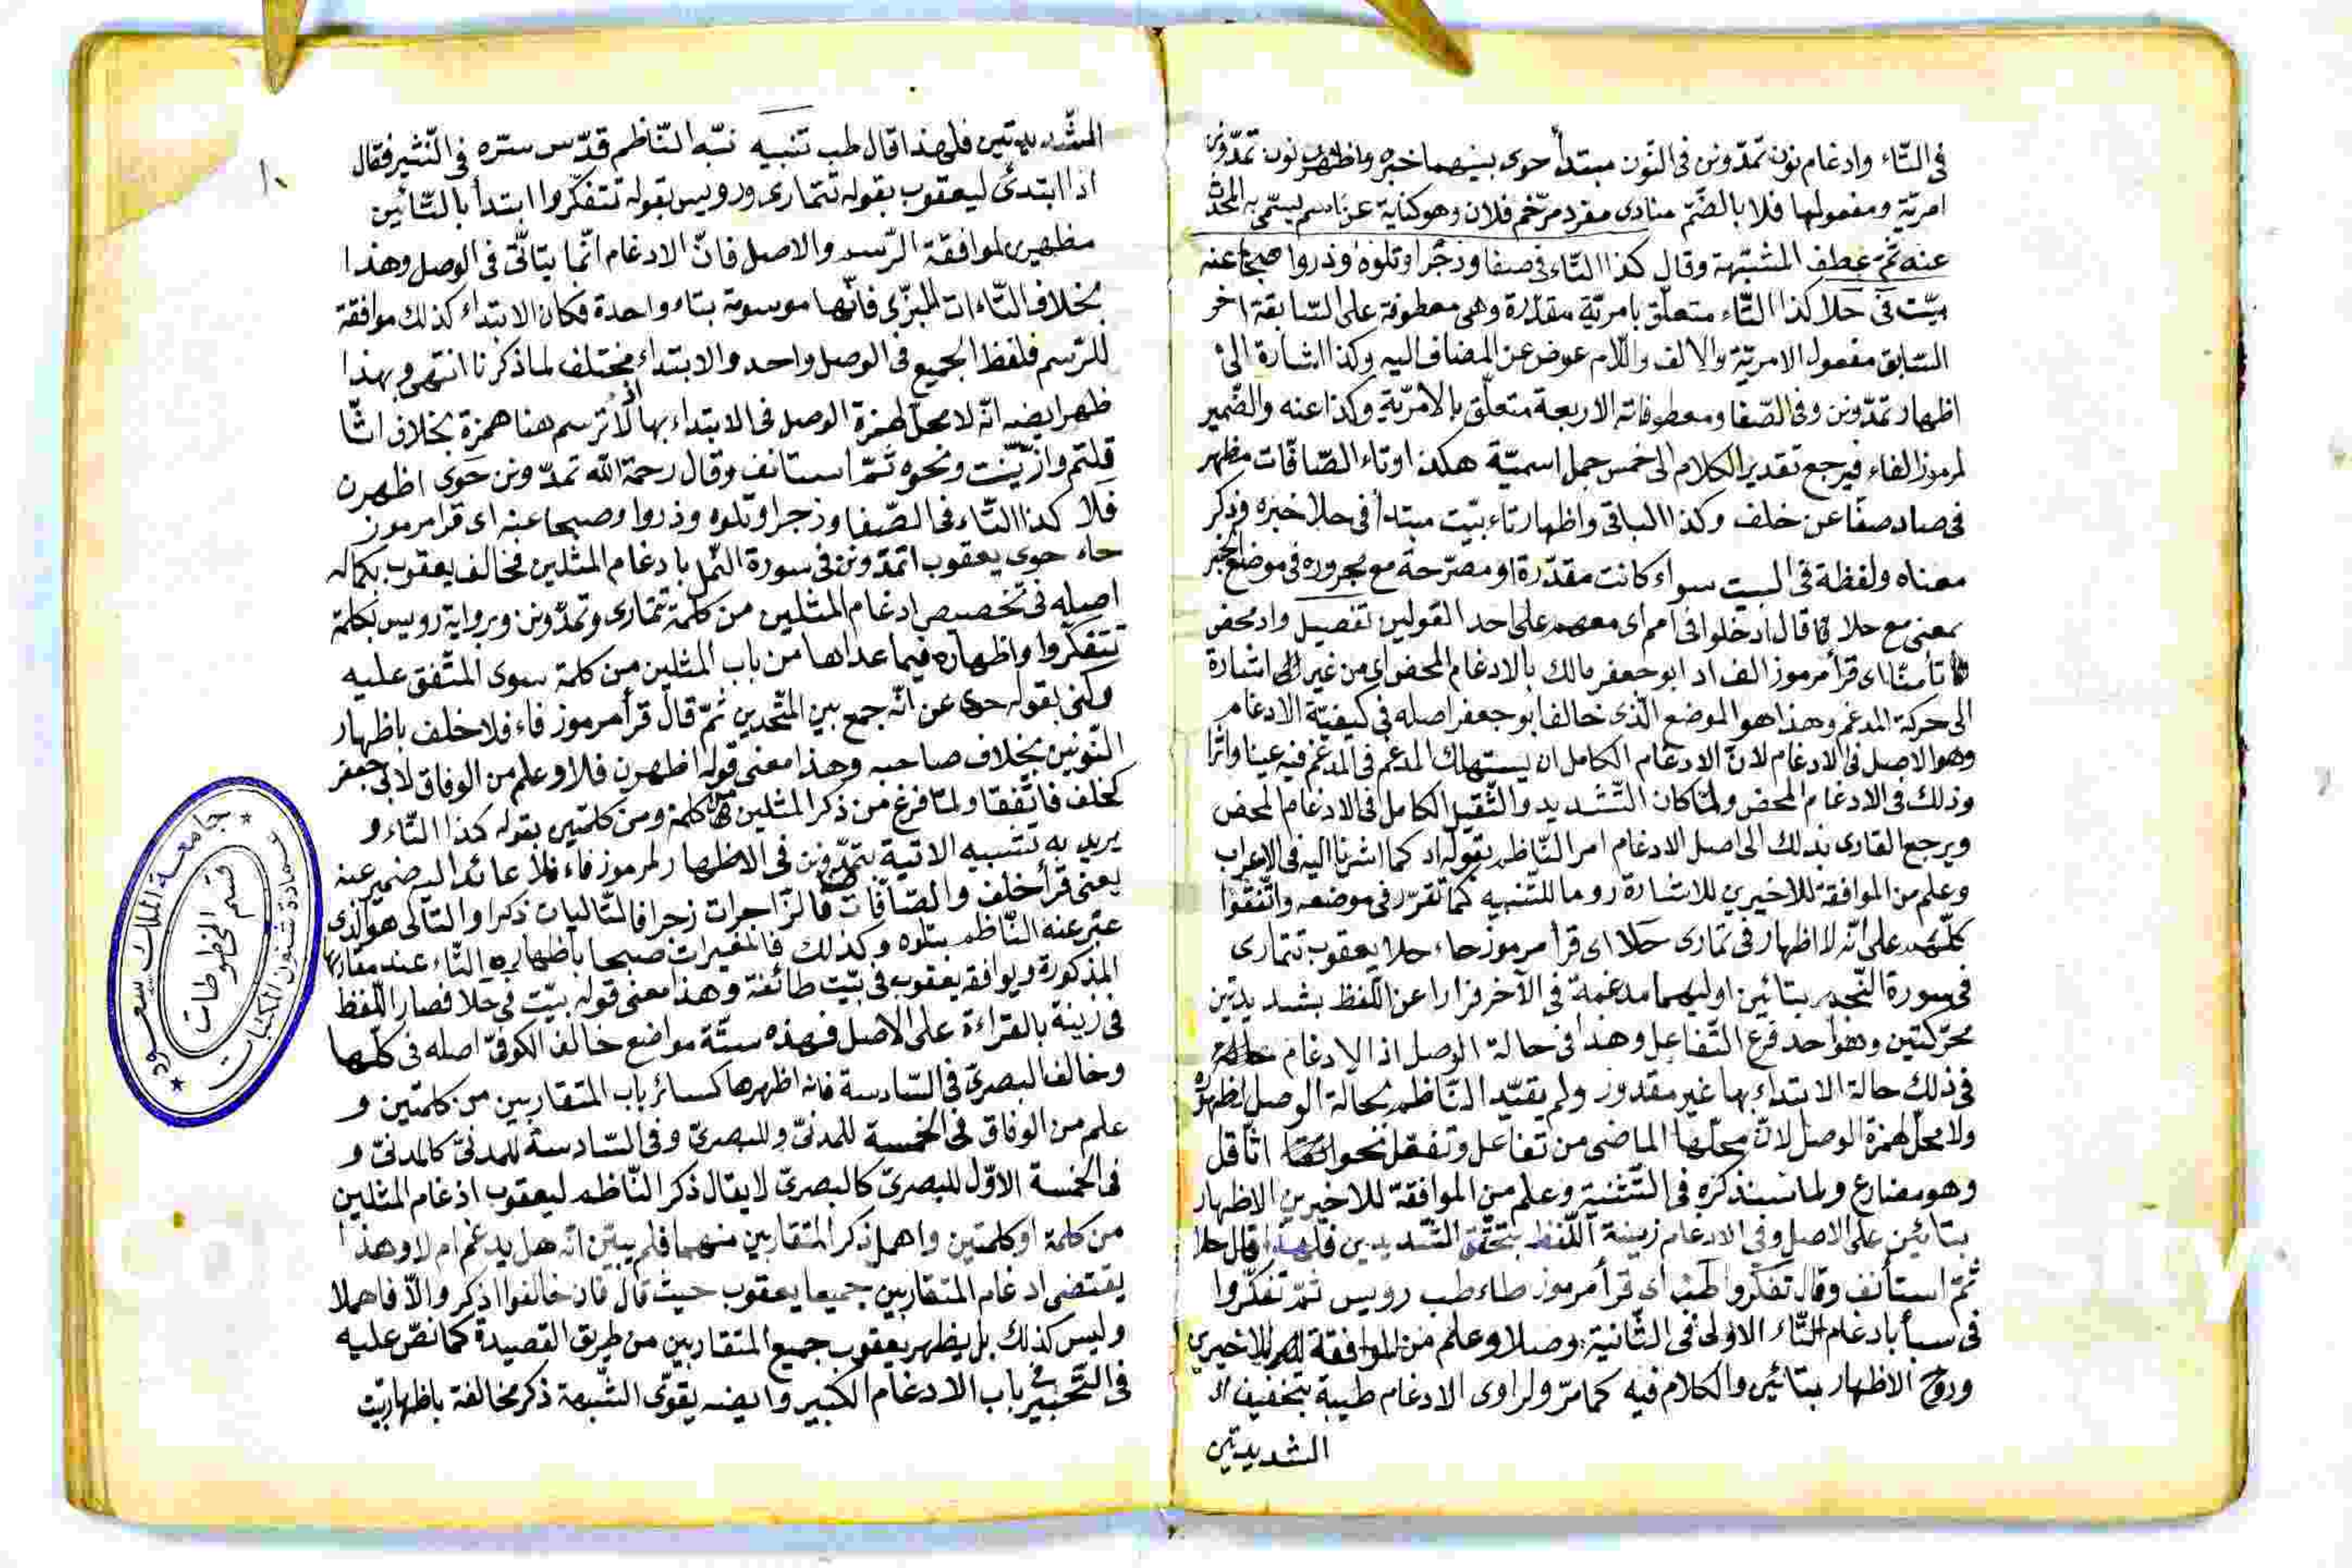 في التّاء وادغام نون تمدّونن في النّون مبتدأ حوى بينهما خبره واظهرن نون تمدّونن
امريّة ومفعولها فلا بالضّم منادى مفرد مرّخم فلان وهو كناية عن اسم يسمّى به المحدّث
عنه ثمّ عطف المشبّهة وقال كذا التّاء في صفا وزجرا وتلوه وذروا صبحا عنه
بيّت في حلا كذا التّاء متعلّق بامريّة مقدّرة وهي معطوفة على السّابقة اخر
السّابق مفعول الامريّة والالف واللّام عوض عن المضاف اليه وكذا اشارة الى
اظهار تمدّونن وفي الصّفا ومعطوفاته الاربعة متعلّق بالامريّة وكذا عنه والضّمير
لمرموز الفاء فيرجع تقدير الكلام الى خمس جمل اسميّة هكذا وتاء الصّافّات مظهر
في صاد صفّا عن خلف وكذا الباقي واظهار تاء بيّت مبتدأ في حلا خبره وذكر
معناه ولفظة في البيت سواء كانت مقدّرة او مصرّحة مع مجروره في موضع الخبر
بمعنى مع حلا كما قال ادخلوا في امم اى معهم على احد القولين تفصيل واد محض
تأمنّا اى قرأ مرموز الف اد ابو جعفر مالك بالادغام المحض اى من غير اشارة
الى حركة المدغم وهذا هو الموضع الّذي خالف ابو جعفر اصله في كيفيّة الادغام
وهو الاصل في الادغام لانّ الادغام الكامل ان يستهلك المدغم في المدغم فيه عينا واثرا
وذلك في الادغام المحض ولمّا كان التّشديد والثّقيل الكامل في الادغام المحض
ويرجع القارى بذلك الى اصل الادغام امر النّاظم بقوله اد كما اشرنا اليه في الاعراب
وعلم من الموافقة للاخيرين للاشارة روما للتّنبيه كما تقرّر في موضعه واتّفقوا
كلّهم على انّه لا اظهار في تمارى حلا اى قرأ مرموز حاء حلا يعقوب تتمارى
في سورة النّجم بتائين اوليهما مدغمة في الآخر فرارا عن اللّفظ بشديدتين
محرّكتين وهو احد فرع التّفاعل وهذا في حالة الوصل اذ الادغام
في ذلك حالة الابتداء بها غير مقدور ولم يقيّد النّاظم بحالة الوصل لظهوره
ولا محلّ لهمزة الوصل لانّ محلّها الماضى من تفاعل وتفعّل نحو اثّاقل
وهو مضارع ولما سنذكره في التّثنية وعلم من الموافقة للاخيرين الاظهار
بتائين على الاصل وفي الادغام زينة اللّفظ بتحقّق الشّديدين فلهذا قال حلا
ثمّ استأنف وقال تفكّروا طب اى قرأ مرموز طاء طب رويس ثمّ تفكّروا
في سبأ بادغام التّاء الاولى في الثّانية وصلا وعلم من الموافقة للاخيرين
وروح الاظهار بتائين والكلام فيه كما مرّ ولراوى الادغام طيبة بتخفيف
الشديدتين
المشّديدتين فلهذا قال طب تنبيه نبّه النّاظم قدّس سرّه في النّشر فقال
اذا ابتدئ ليعقوب بقوله تتمارى ورويس بقوله تتفكّروا ابتدأ بالتّائين
مظهرين لموافقة الرّسم والاصل فانّ الادغام انّما يتأتّى في الوصل وهذا
بخلاف التّاءات للبزّي فانّها موسومة بتاء واحدة فكان الابتداء كذلك موافقة
للرّسم فلفظ الجميع في الوصل واحد والابتداء مختلف لما ذكرنا انتهى وبهذا
ظهر ايضه انّه لا محلّ لهمزة الوصل في الابتداء بها اذ لم ترسم هنا همزة بخلاف اثّا
قلتم وازّيّنت ونحوه ثمّ استانف وقال رحمة الله تمدّونن حوى اظهرن
فلا كذا التّاء في الصّفا وزجرا وتلوه وذروا وصبحا عنه اى قرا مرموز
حاء حوى يعقوب اتمدّونن في سورة النّمل بادغام المثلين فخالف يعقوب بكماله
اصله في تخصيص ادغام المثلين من كلمة تتمارى وتمدّونن وبرواية رويس بكلمة
تتفكّروا واظهاره فيما عداها من باب المثلين من كلمة سوى المتّفق عليه
وكنى بقوله حوى عن انّه جمع بين المتّحدين ثمّ قال قرأ مرموز فاء فلا خلف باظهار
النّونين بخلاف صاحبه وهذا معنى قوله اظهرن فلا وعلم من الوفاق لابي جعفر
كخلف فاتّفقا ولمّا فرغ من ذكر المثلين من كلمة ومن كلمتين بقوله كذا التّاء و
يريد به تشبيه الاتية بتمدّونن في الاظهار لمرموز فاء فلا عائدا اليه ضمير عنه
يعنى قرأ خلف والصّافّات صفا فالزّاجرات زجرا فالتّاليات ذكرا والتّالى هو الّذي
عبّر عنه النّاظم بتلوه وكذلك فالمغيرات صبحا باظهاره التّاء عند مقاربها
المذكورة ويوافقه يعقوب في بيّت طائفة وهذا معنى قوله بيّت في حلا فصار اللّفظ
في زينة بالقراءة على الاصل فهذه ستّة مواضع خالف الكوفيّ اصله في كلّها
وخالف البصريّ في السّادسة فانه اظهرها كسائر باب المتقاربين من كلمتين و
علم من الوفاق في الخمسة للمدنيّ وللبصريّ وفي السّادسة للمدنيّ كالمدنيّ و
في الخمسة الاوّل للبصريّ كالبصريّ لا يقال ذكر النّاظم ليعقوب ادغام المثلين
من كلمة او كلمتين واهمل ذكر المتقاربين منهما فلم يبيّن انّه هل يدغم ام لا وهذا
يقتضى ادغام المتقاربين جميعا يعقوب حيث قال فان خالفوا اذكر والّا فاهملا
وليس كذلك بل يظهر يعقوب جميع المتقاربين من طريق القصيدة كما نصّ عليه
في التّحبير في باب الادغام الكبير وايضه يقوّى الشّبهة ذكر مخالفة باظهار بيّت
جامعة الملك سعود
عمادة شئون المكتبات
قسم المخطوطات